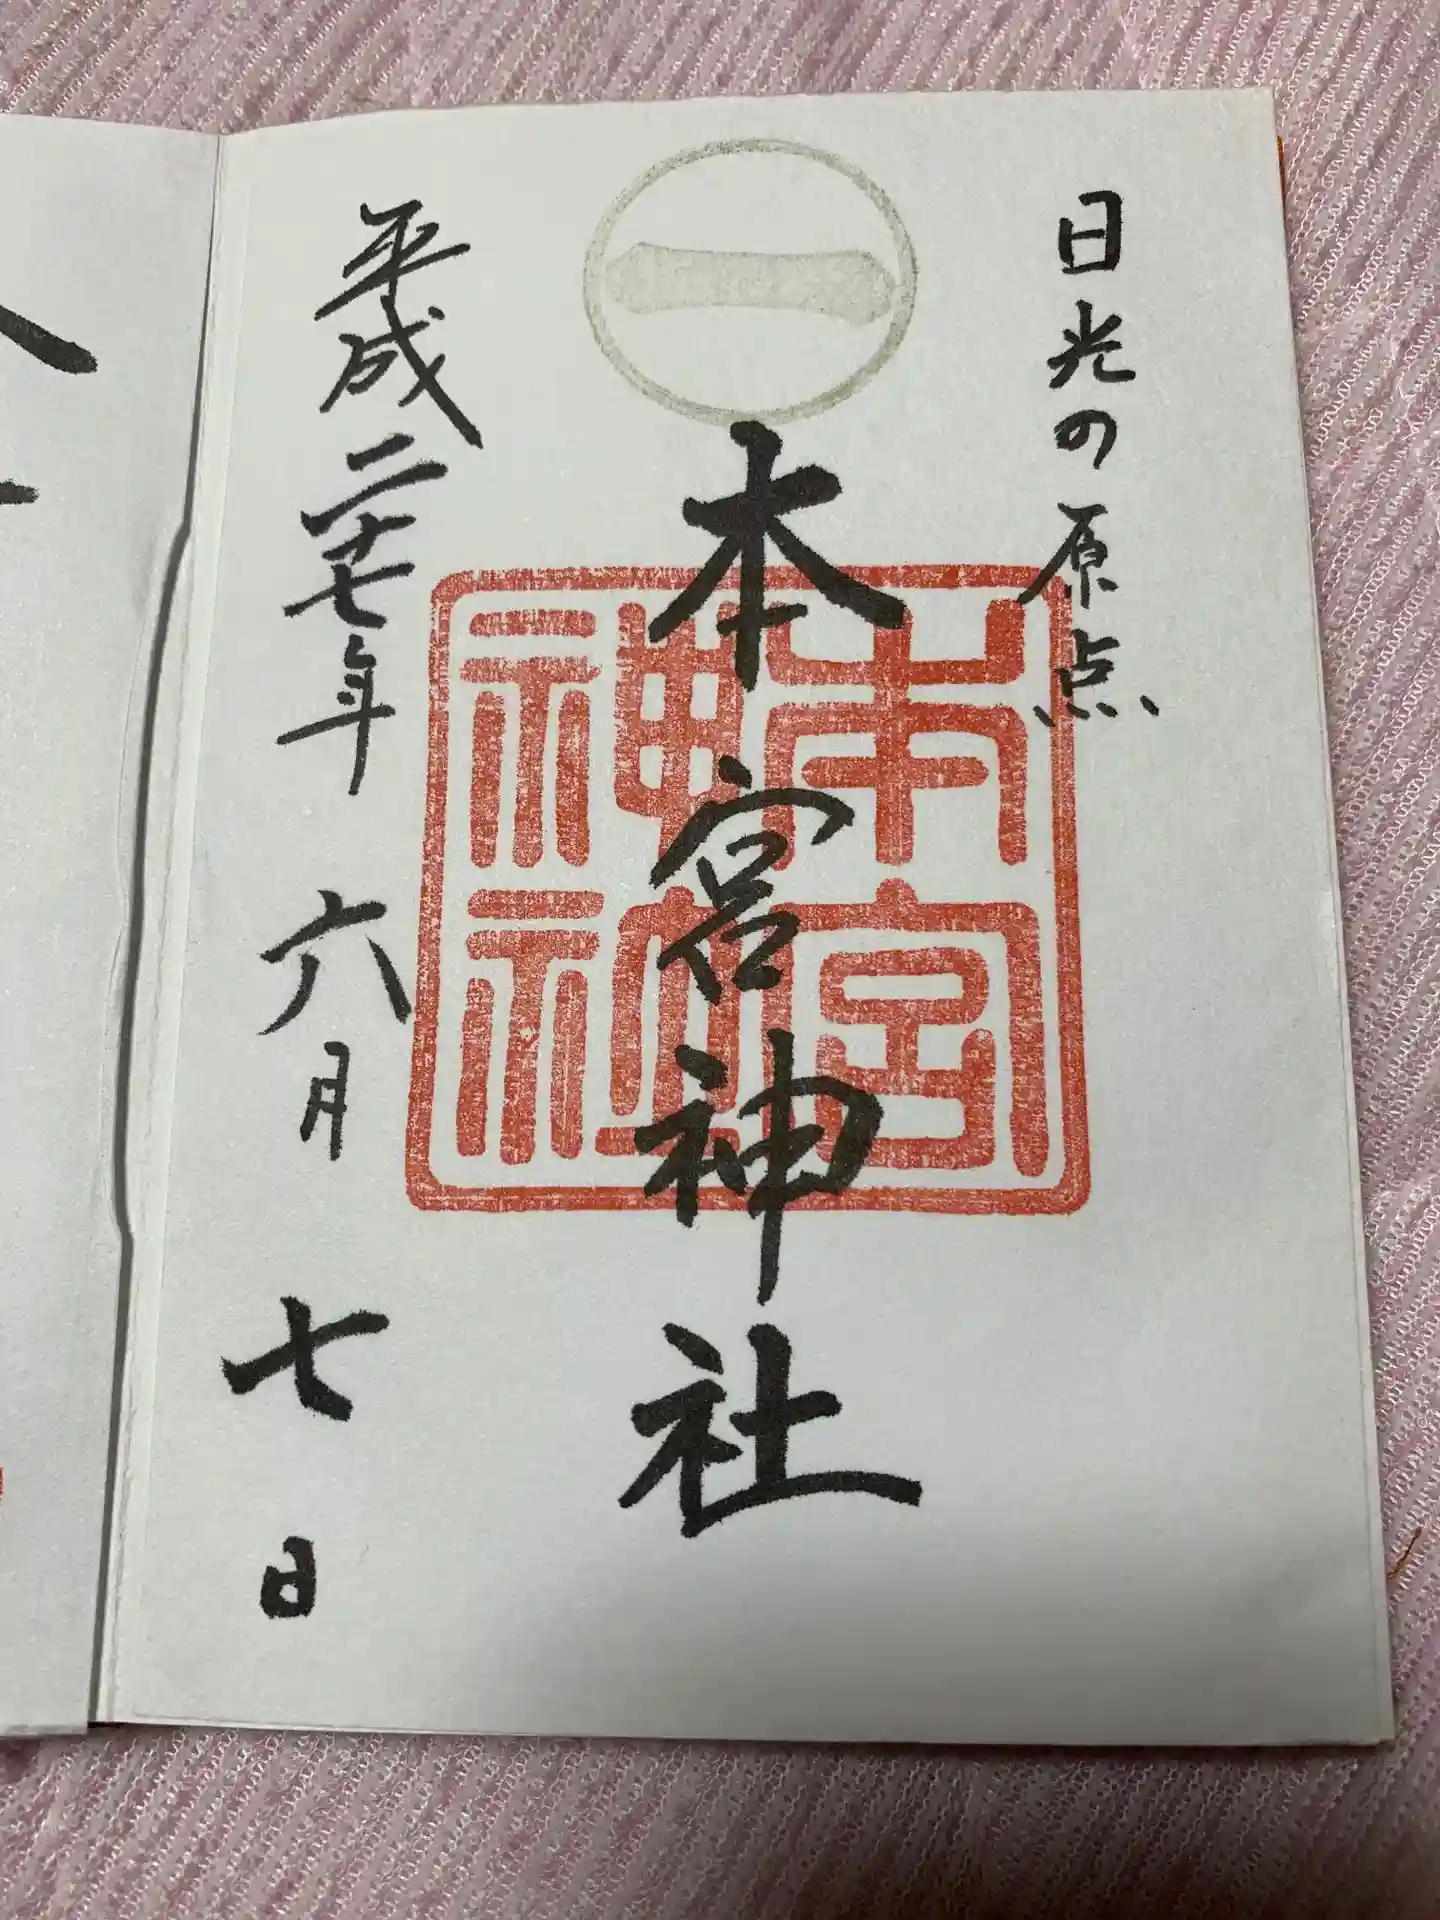 日光の原点
一
本宮神社
本宮神社
平成二十七年六月七日